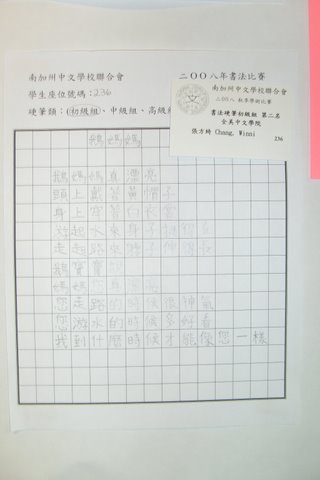 南加州中文學校聯合會
二００八年書法比賽
學生座位號碼：236
硬筆類：初級組、中級組、高級組
南加州中文學校聯合會
二００八 秋季學術比賽
書法硬筆初級組 第二名
全美中文學院
張方綺 Chang, Winni
236
鵝媽媽
鵝媽媽真漂亮
頭上戴著黃帽子
身上穿著白衣裳
游起水來身子
走起路來脖子伸得
鵝寶寶說
媽媽
您走路的時候很神氣
您游水的時候多好看
我到什麼時候才能像您一樣